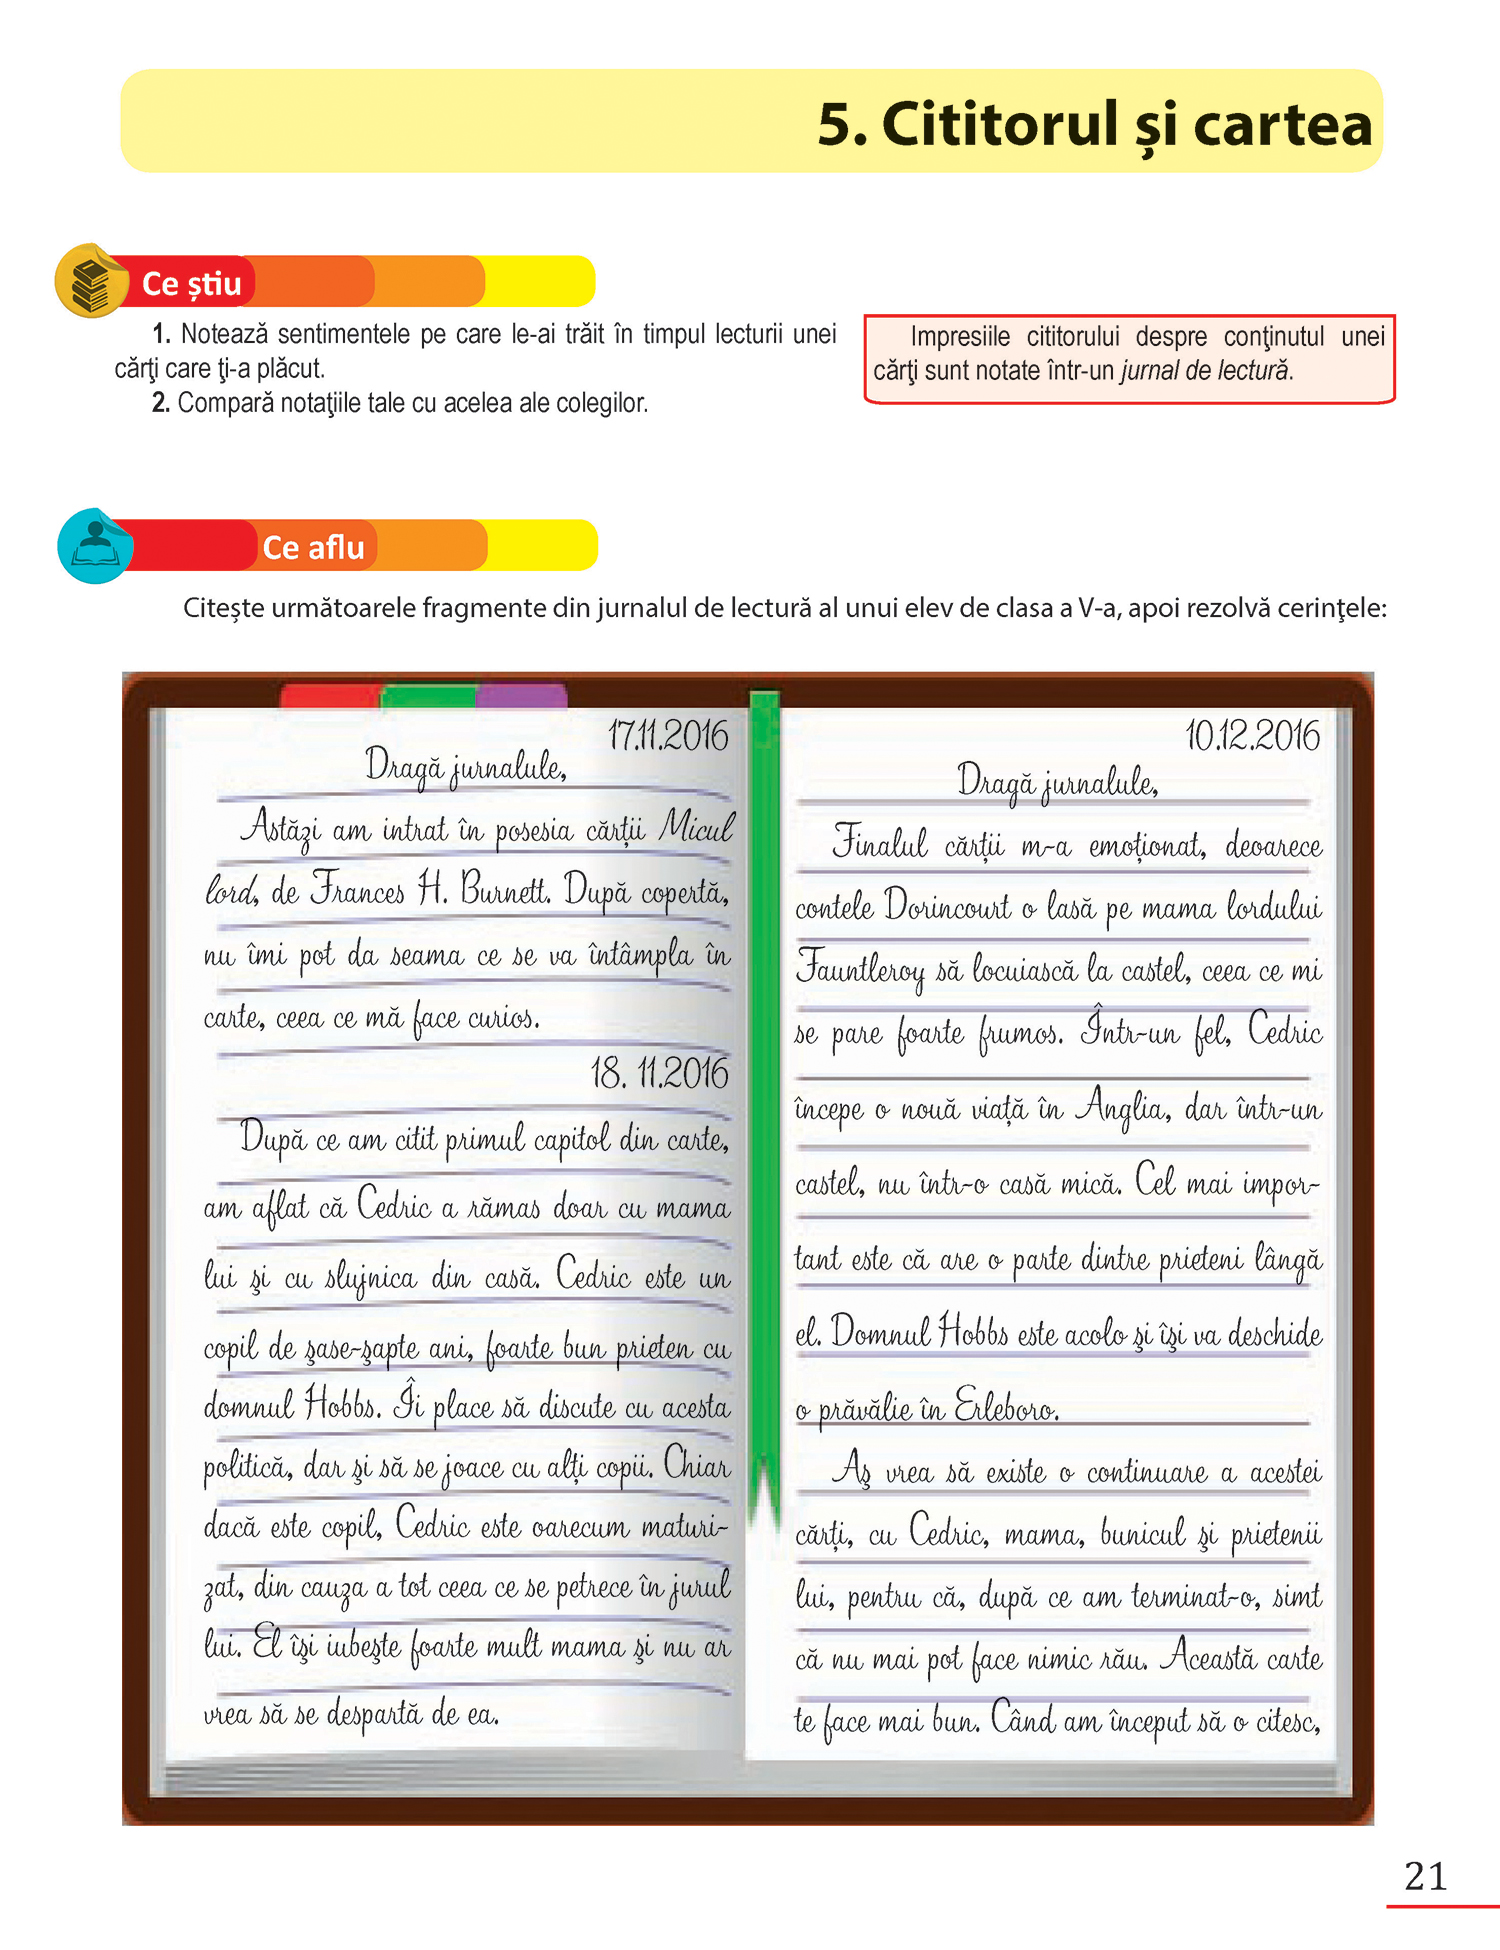 5. Cititorul și cartea
Ce știu
1. Notează sentimentele pe care le-ai trăit în timpul lecturii unei
cărţi care ţi-a plăcut.
2. Compară notaţiile tale cu acelea ale colegilor.
Impresiile cititorului despre conţinutul unei
cărţi sunt notate într-un jurnal de lectură.
Ce aflu
Citește următoarele fragmente din jurnalul de lectură al unui elev de clasa a V-a, apoi rezolvă cerinţele:
17.11.2016
Dragă jurnalule,
Astăzi am intrat în posesia cărții Micul
lord, de Frances H. Burnett. După copertă,
nu îmi pot da seama ce se va întâmpla în
carte, ceea ce mă face curios.
18. 11.2016
După ce am citit primul capitol din carte,
am aflat că Cedric a rămas doar cu mama
lui şi cu slujnica din casă. Cedric este un
copil de şase-şapte ani, foarte bun prieten cu
domnul Hobbs. Îi place să discute cu acesta
politică, dar şi să se joace cu alți copii. Chiar
dacă este copil, Cedric este oarecum maturi-
zat, din cauza a tot ceea ce se petrece în jurul
lui. El îşi iubeşte foarte mult mama şi nu ar
vrea să se despartă de ea.
10.12.2016
Dragă jurnalule,
Finalul cărții m-a emoționat, deoarece
contele Dorincourt o lasă pe mama lordului
Fauntleroy să locuiască la castel, ceea ce mi
se pare foarte frumos. Într-un fel, Cedric
începe o nouă viață în Anglia, dar într-un
castel, nu într-o casă mică. Cel mai impor-
tant este că are o parte dintre prieteni lângă
el. Domnul Hobbs este acolo şi îşi va deschide
o prăvălie în Erleboro.
Aş vrea să existe o continuare a acestei
cărți, cu Cedric, mama, bunicul şi prietenii
lui, pentru că, după ce am terminat-o, simt
că nu mai pot face nimic rău. Această carte
te face mai bun. Când am început să o citesc,
21